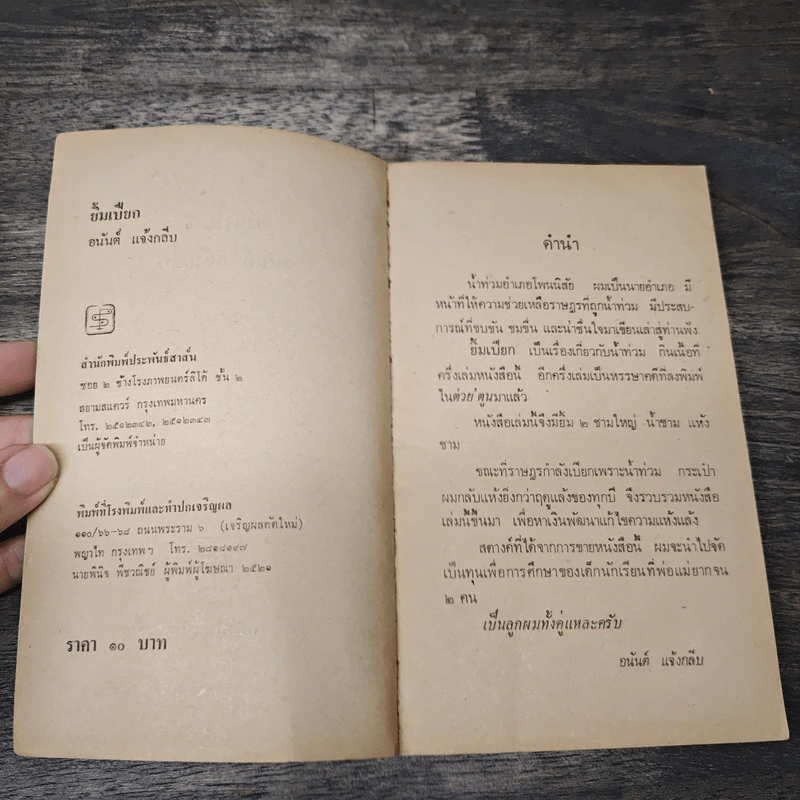 ยิ้มเปียก
อนันต์ แจ้งกลีบ
สำนักพิมพ์ประพันธ์สาส์น
ซอย ๒ ข้างโรงภาพยนตร์ลิโด้ ชั้น ๒
สยามสแควร์ กรุงเทพมหานคร
โทร. ๒๕๑๒๓๔๒, ๒๕๑๒๓๔๓
เป็นผู้จัดพิมพ์จำหน่าย
พิมพ์ที่โรงพิมพ์และทำปกเจริญผล
๑๑๐/๖๖-๖๘ ถนนพระราม ๖ (เจริญผลตัดใหม่)
พญาไท กรุงเทพฯ โทร. ๒๘๑๘๑๙๗
นายพินิจ พืชวณิชย์ ผู้พิมพ์ผู้โฆษณา ๒๕๒๑
ราคา ๑๐ บาท
คำนำ
น้ำท่วมอำเภอโพนนิสัย ผมเป็นนายอำเภอ มี
หน้าที่ให้ความช่วยเหลือราษฎรที่ถูกน้ำท่วม มีประสบ-
การณ์ที่ขบขัน ขมขื่น และน่าชื่นใจมาเขียนเล่าสู่ท่านฟัง
ยิ้มเปียก เป็นเรื่องเกี่ยวกับน้ำท่วม กินเนื้อที่
ครึ่งเล่มหนังสือนี้ อีกครึ่งเล่มเป็นหรรษาคดีที่ลงพิมพ์
ในต่วย ตูนมาแล้ว
หนังสือเล่มนี้จึงมียิ้ม ๒ ชามใหญ่ น้ำชาม แห้ง
ชาม
ขณะที่ราษฎรกำลังเปียกเพราะน้ำท่วม กระเป๋า
ผมกลับแห้งยิ่งกว่าฤดูแล้งของทุกปี จึงรวบรวมหนังสือ
เล่มนี้ขึ้นมา เพื่อหาเงินพัฒนาแก้ไขความแห้งแล้ง
สตางค์ที่ได้จากการขายหนังสือนี้ ผมจะนำไปจัด
เป็นทุนเพื่อการศึกษาของเด็กนักเรียนที่พ่อแม่ยากจน
๒ คน
เป็นลูกผมทั้งคู่แหละครับ
อนันต์ แจ้งกลีบ